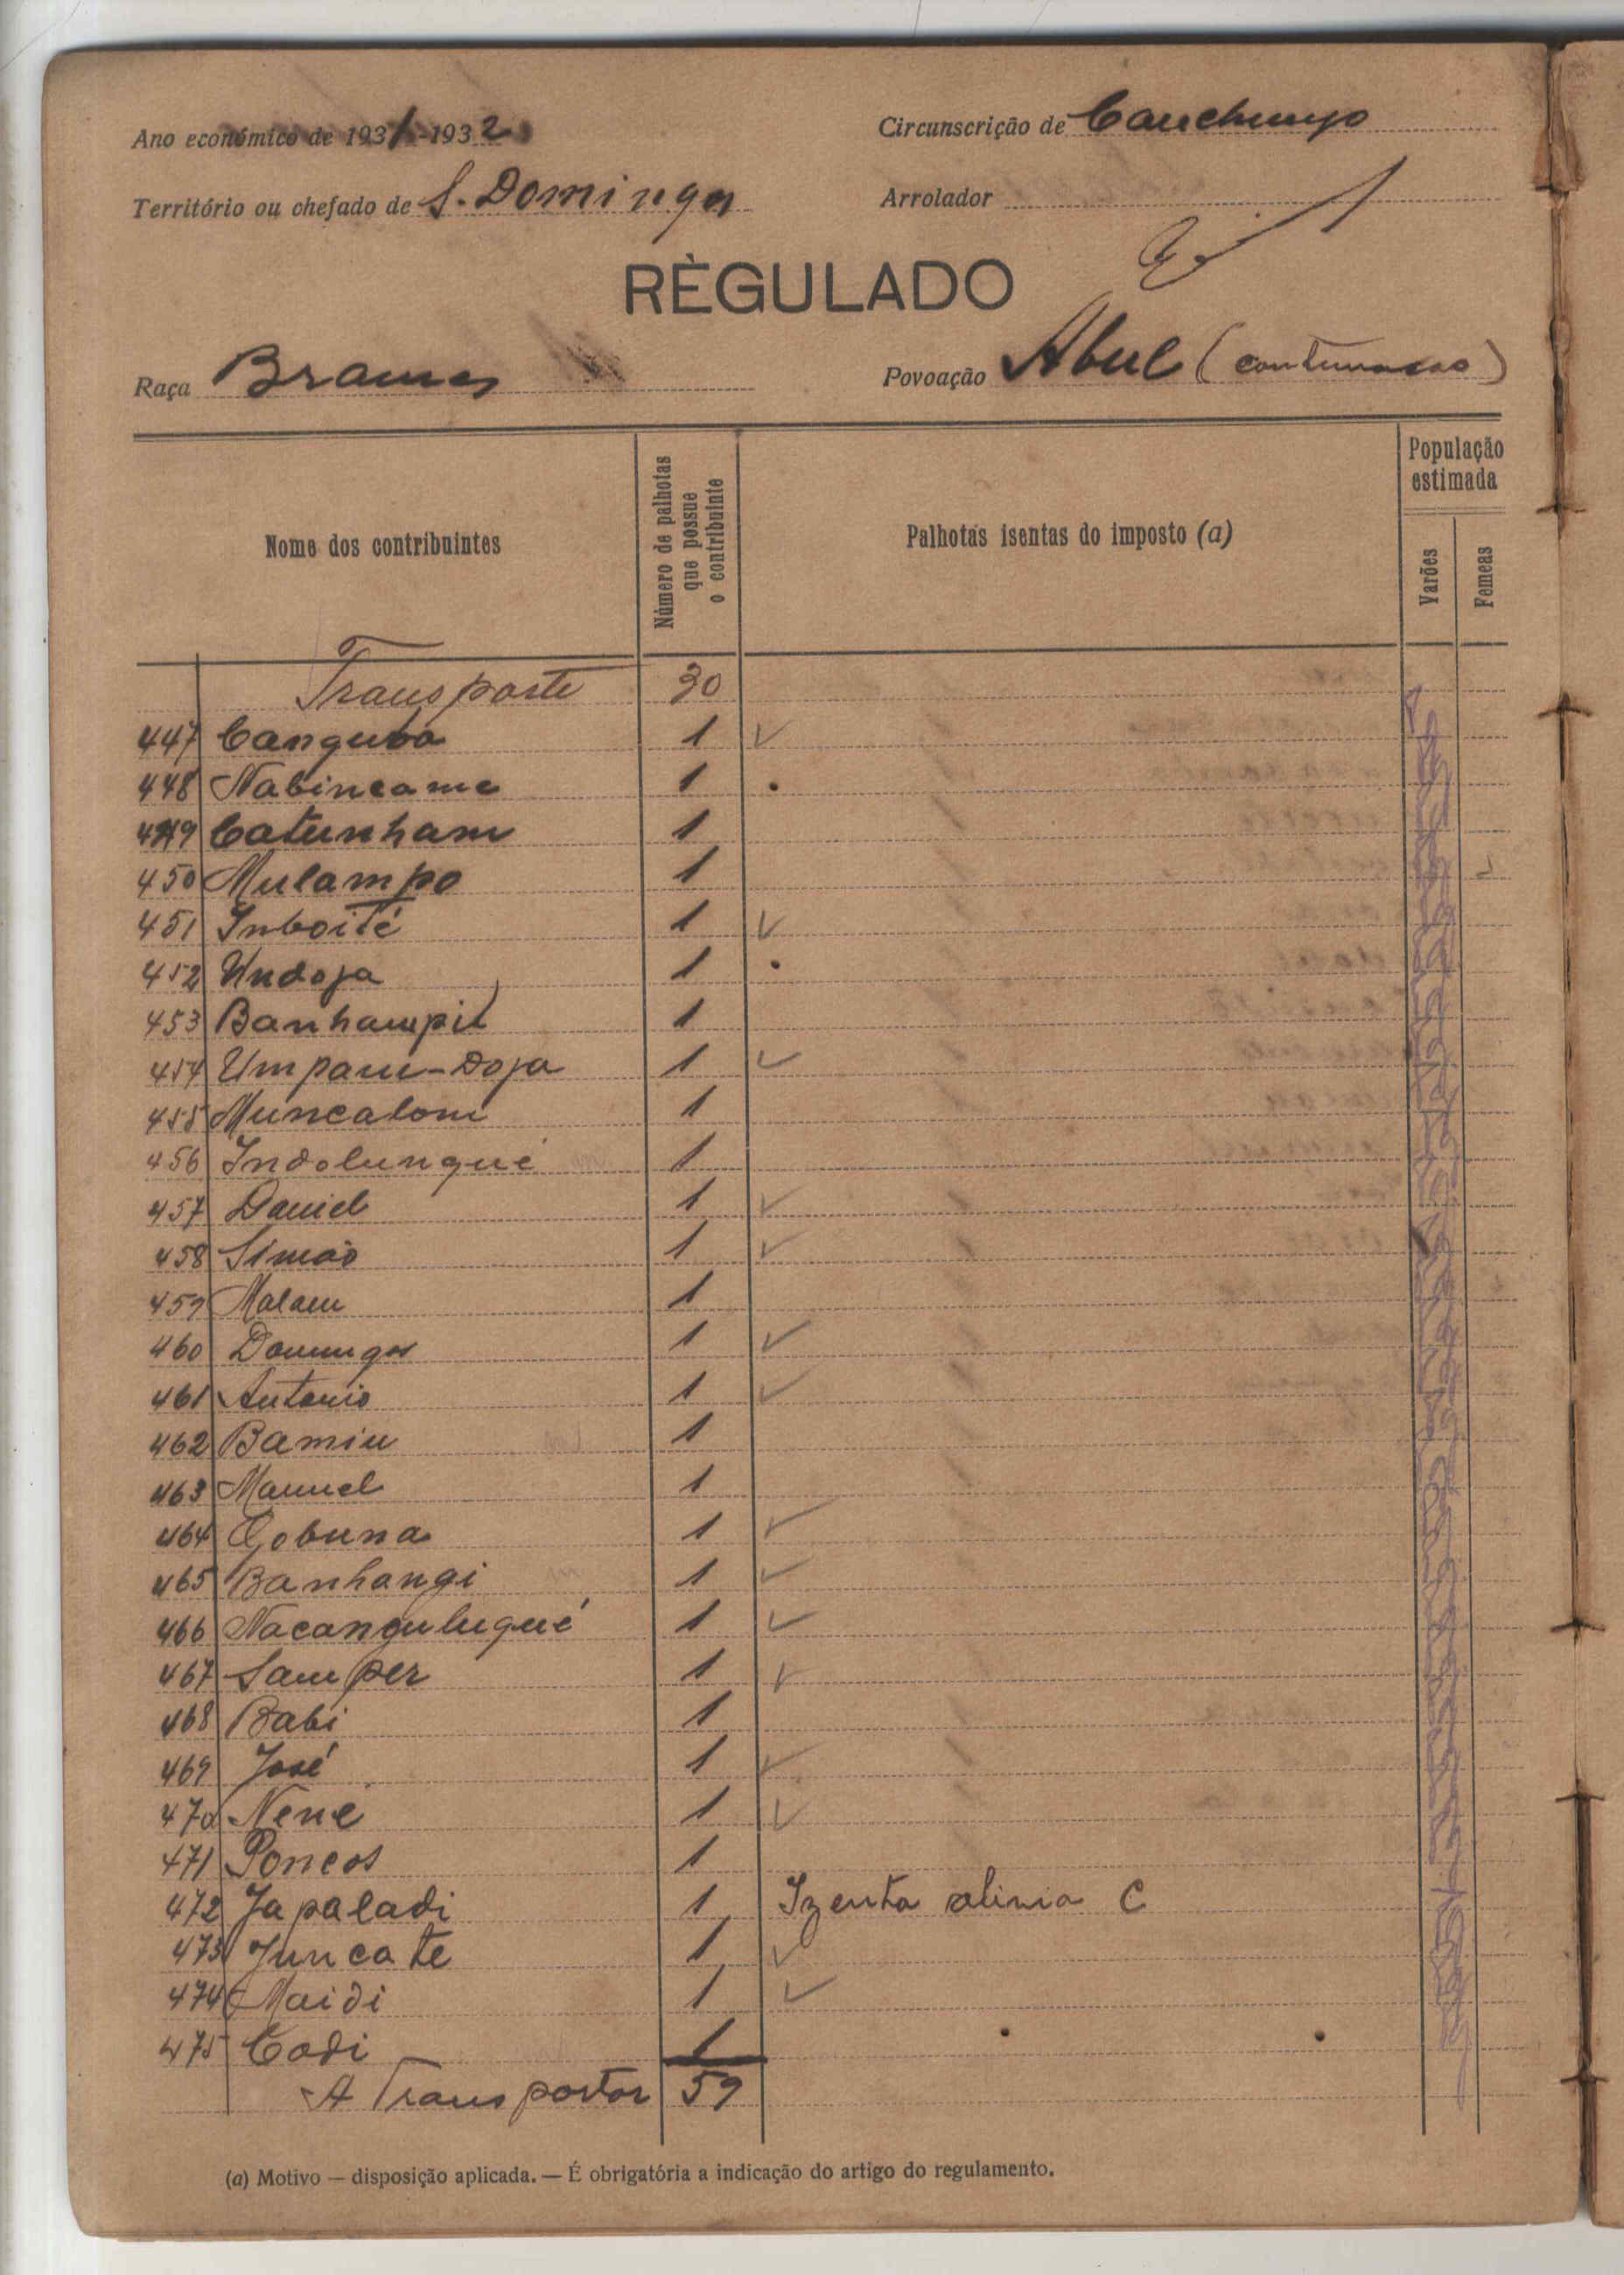 Ano económico de 1931-1932
Circunscrição de Canchungo
Território ou chefado de S. Domingos
Arrolador
RÈGULADO
Raça Brames
Povoação Abul (continuacao)
Nome dos contribuintes
Número de palhotas que possue o contribuinte
Palhotas isentas do imposto (a)
População estimada
Varões
Femeas
Transporte 30
447 Canguba 1
448 Nabincame 1
449 Catunham 1
450 Mulampo 1
451 Inboité 1
452 Undoja 1
453 Banhampil 1
454 Umpam-Doja 1
455 Muncalom 1
456 Indolunqué 1
457 Daniel 1
458 Simão 1
459 Malam 1
460 Domingos 1
461 Antonio 1
462 Bamiu 1
463 Manuel 1
464 Gobuna 1
465 Banhangi 1
466 Nacanguluqué 1
467 Samper 1
468 Babi 1
469 José 1
470 Nené 1
471 Poncos 1
472 Japaladi 1 Izenta alinia C
473 Juncate 1
474 Maidi 1
475 Codi 1
A Transportar 59
(a) Motivo — disposição aplicada. — É obrigatória a indicação do artigo do regulamento.